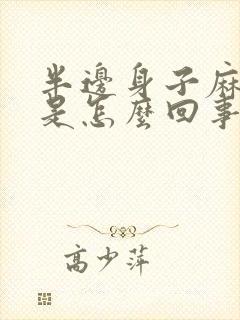 半邊身子麻
是怎麼回事
高少萍